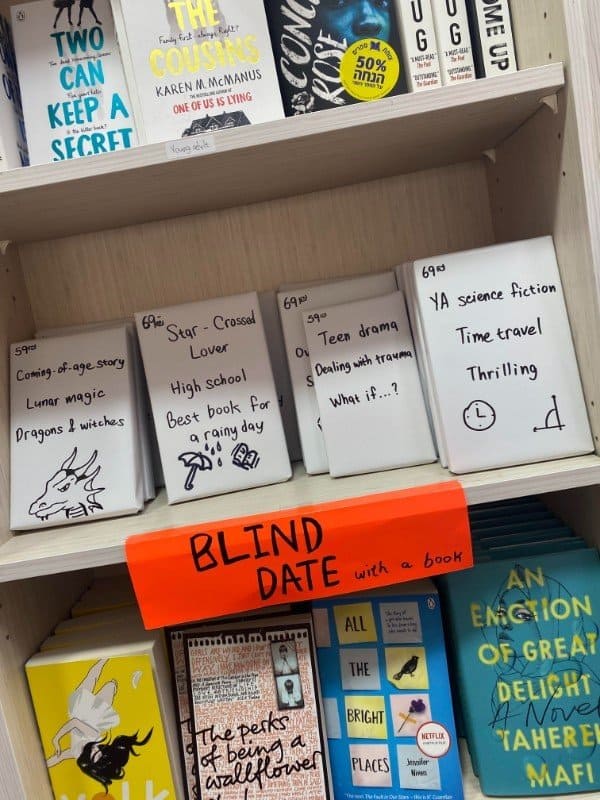 TWO
CAN
KEEP A
SECRET
THE
Family first. Always. Right?
COUSINS
KAREN M. McMANUS
THE BESTSELLING AUTHOR
OF ONE OF US IS LYING
CONC
ROSE
50%
הנחה
UG
"A MUST-READ"
The Pool
"OUTSTANDING"
The Guardian
UG
"A MUST-READ"
The Pool
"OUTSTANDING"
The Guardian
OME UP
Young adult
59₪
Coming-of-age story
Lunar magic
Dragons & witches
69₪
Star-Crossed
Lover
High school
Best book for
a rainy day
69₪
59₪
Teen drama
Dealing with trauma
What if...?
69₪
YA science fiction
Time travel
Thrilling
BLIND
DATE with a book
The perks
of being a
wallflower
ALL
THE
BRIGHT
PLACES
Jennifer
Niven
NETFLIX
AN
EMOTION
OF GREAT
DELIGHT
A Novel
TAHEREH
MAFI